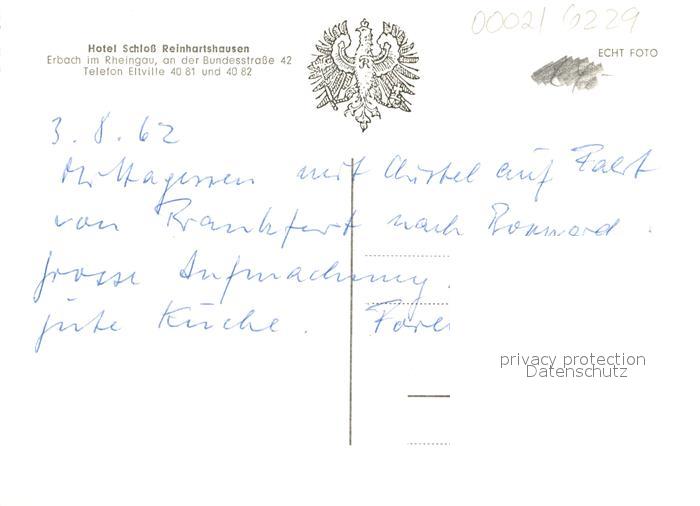 00021 6229
Hotel Schloß Reinhartshausen
Erbach im Rheingau, an der Bundesstraße 42
Telefon Eltville 40 81 und 40 82
ECHT FOTO
3.8.62
Mittagessen mit Christel auf Fahrt
von Frankfurt nach Boppard.
grosse Aufmachung.
gute Küche. Forel
privacy protection
Datenschutz